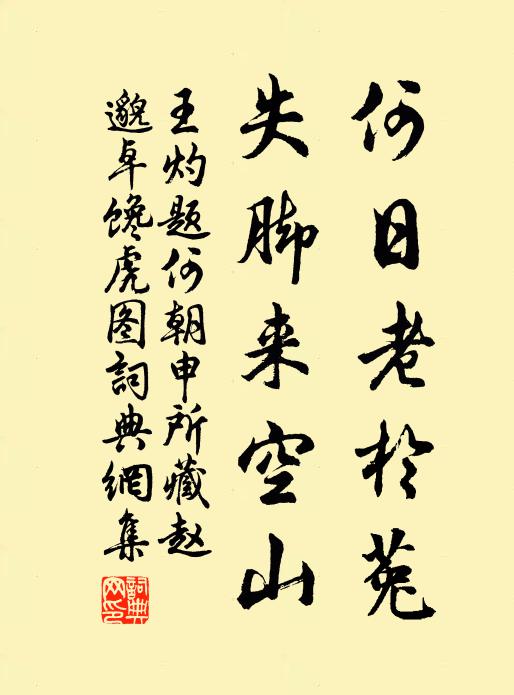 何日老於菟
失脚来空山
王灼题何朝申所藏赵
邈卓馋虎图詞典網集
詞典網印